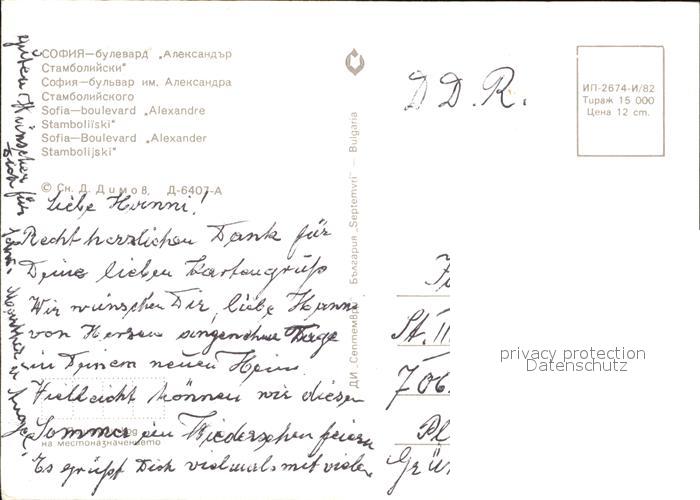 СОФИЯ—булевард „Александър
Стамболийски"
София—бульвар им. Александра
Стамболийского
Sofia—boulevard „Alexandre
Stamboliïski"
Sofia—Boulevard „Alexander
Stambolijski"
© Сн. Д. Димов, Д-6407-А
ДИ „Септември" България „Septemvri" — Bulgaria
ИП-2674-И/82
Тираж 15 000
Цена 12 cm.
D D. R.
Liebe Hanni!
Recht herzlichen Dank für
Deine lieben Kartengruß
Wir wünschen Dir, liebe Hanni
von Herzen angenehme Tage
in Deinem neuen Heim.
Vielleicht können wir diesen
Sommer ein Wiedersehen feiern
на местоназначението
Es grüßt Dich vielmals mit vielen
guten Wünschen
Dich für
St. II
706
Pl
Grü
privacy protection
Datenschutz